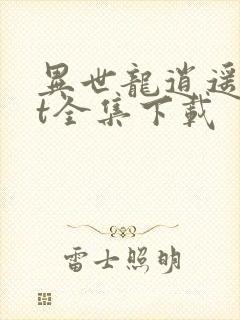 異世龍逍遥
t全集下載
雷士照明